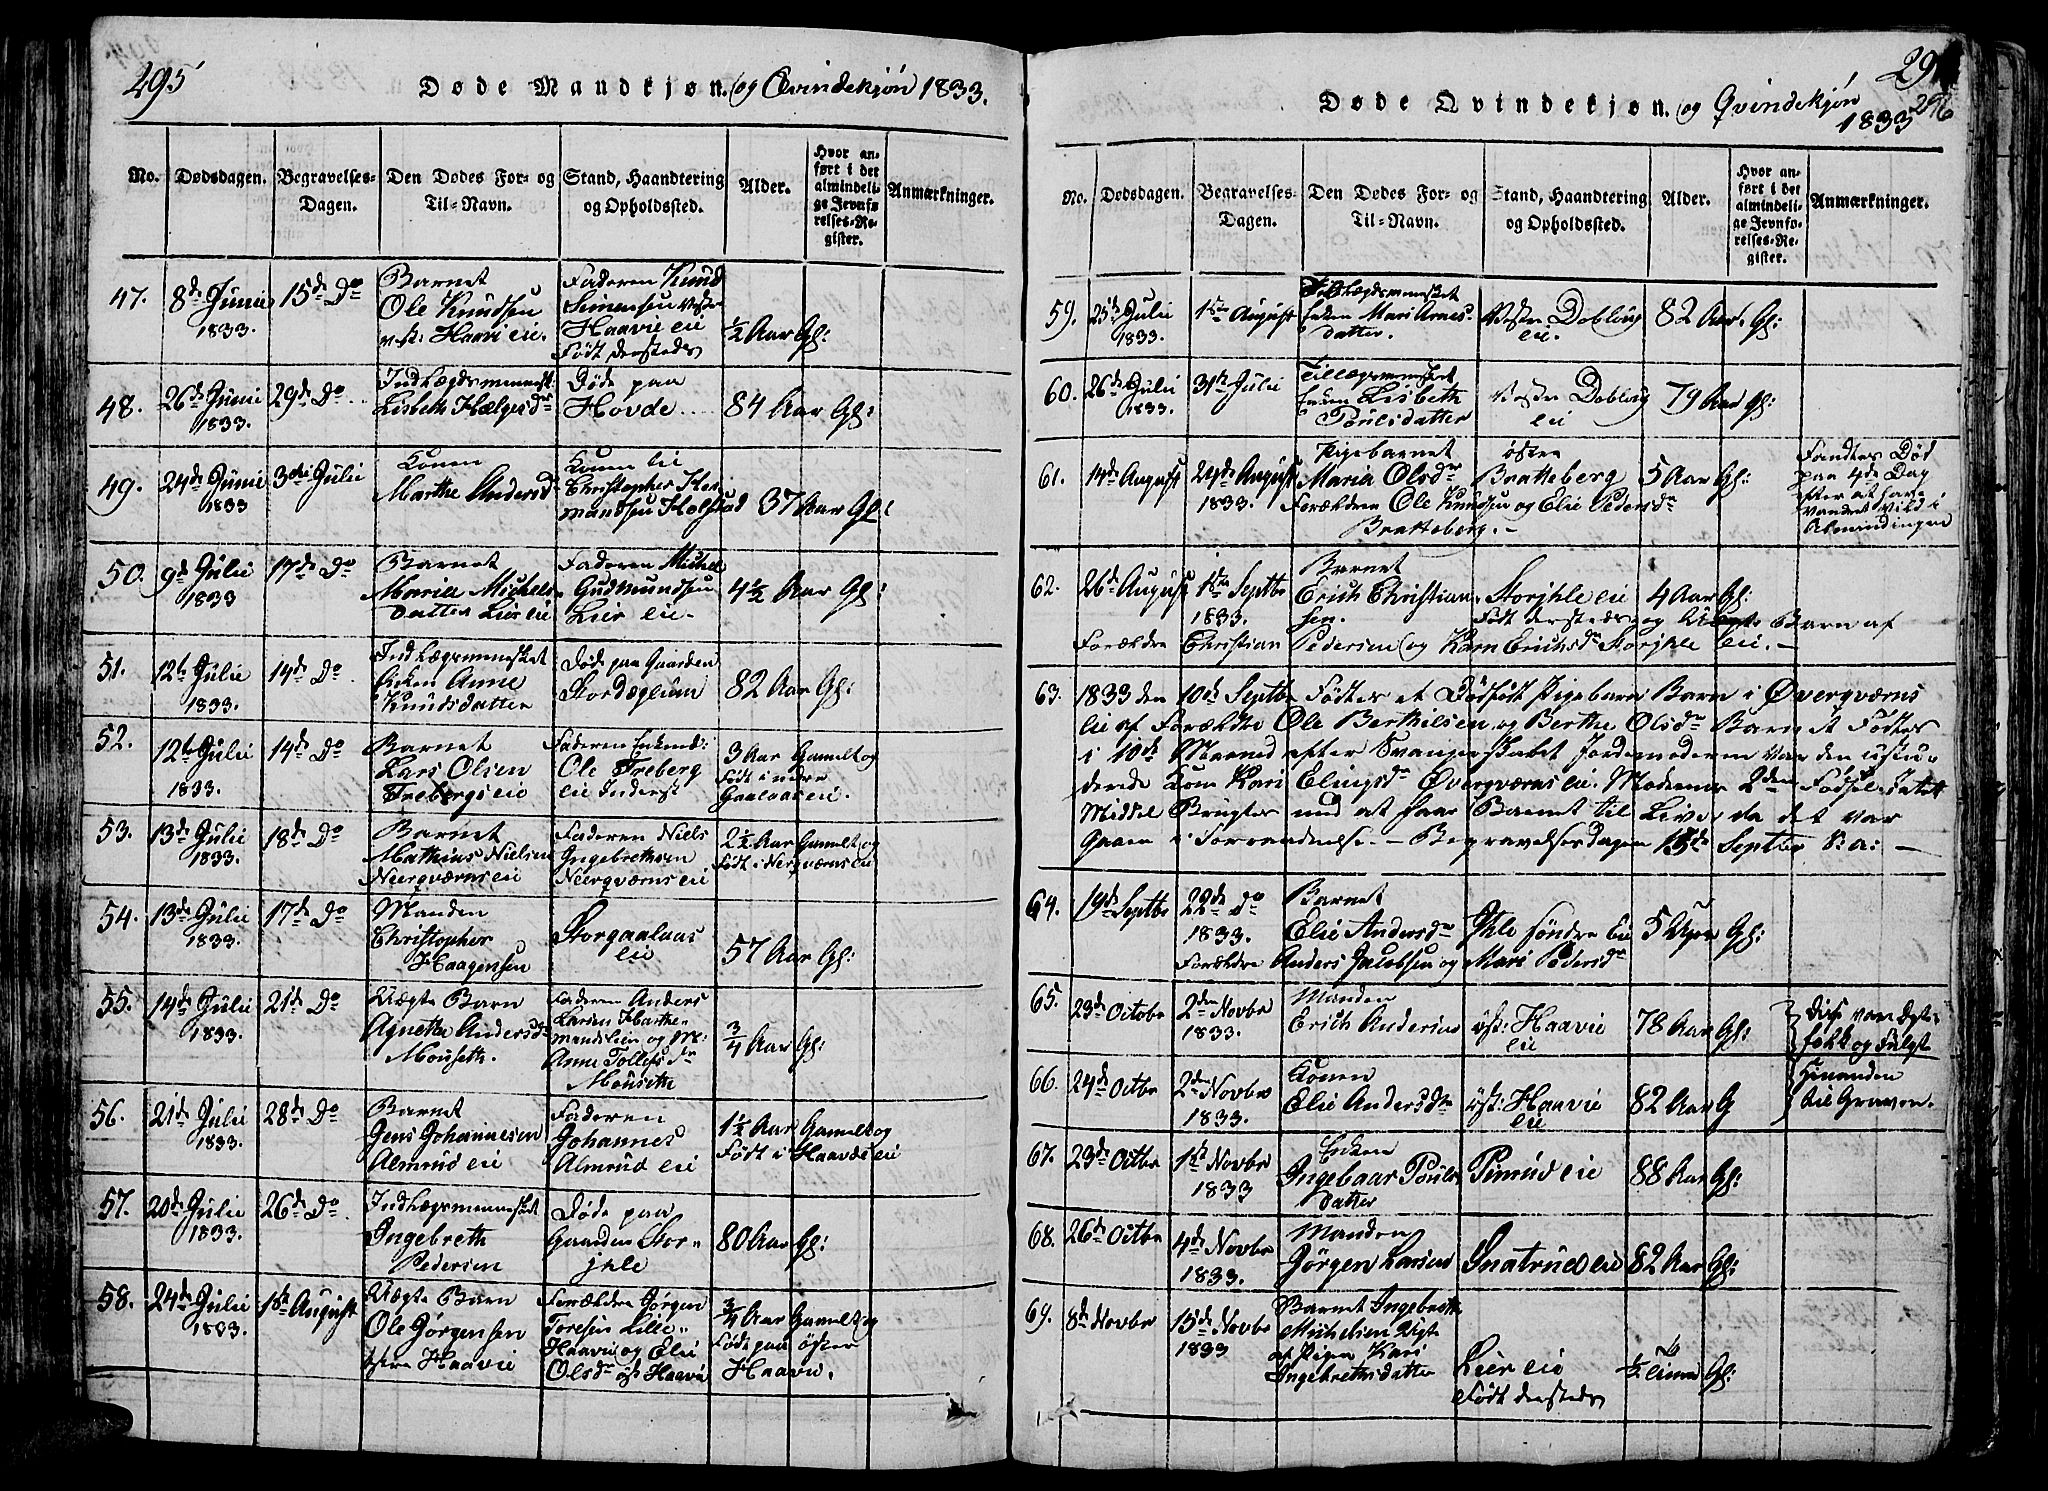 295
Døde Mandkjøn. og Qvindekjøn 1833.
No. Dødsdagen. Begravelses-Dagen. Den Dødes For- og Til-Navn. Stand, Haandtering og Opholdssted. Alder. Hvor anført i det almindelige Jevnførelses-Register. Anmærkninger.
47. 8de Junii 1833. 15de Do Barnet
Ole Knudsen
øst: Haavi eie.
Faderen Knud
Simensen
Haavie eie
Født dersteds
½ Aar Gl:
48. 26de Junii 1833. 29de Do Indlægdsmennesk:
Lisbeth Helgesdr
Døde paa
Hovde
84 Aar Gl:
49. 24de Junii 1833 3die Julii Konen
Marthe Andersd
Konen til
Christopher
mandsen Holstad
37 Aar Gl:
50. 9de Julii 1833 17de Do Barnet
Marie Michels
datter Lier eie
Faderen Michel
Gudmundsen
Lier eie
4½ Aar Gl:
51. 12te Julii 1833. 14de Do Indlægsmennesket
Enken Anne
Knudsdatter
Døde paa Gaarden
Stordæglum
82 Aar Gl:
52. 12te Julii 1833. 14de Do Barnet
Lars Olsen
Trebergseie
Faderen
Ole Treberg
eie Inderst
3 Aar Gamelt og
Født i nedre
Gaalaas eie.
53. 13de Julii 1833. 18de Do Barnet
Mathias Nielsen
Neergværns eie
Faderen Niels
Ingebrethsen
Neergværns eie
2½ Aar Gamelt og
Født i Nergværns eie
54. 13de Julii 1833. 17de Do Manden
Christopher
Haagensen
Storgaalaas
eie
57 Aar Gl:
55. 14de Julii 1833. 21de Do Uægte Barn
Agnethe Andersdr
Mouseth.
Faderen Anders
Larsen
og M:
Anne Tollefsdr
Mouseth
¾ Aar Gl:
56. 21de Julii 1833. 28de Do Barnet
Jens Johannesen
Almrud eie
Faderen
Johannes
Almrud eie
1½ Aar Gamelt og
Født i Haavdes eie
57. 20de Julii 1833. 26de Do Indlægsmennesket
Ingebreth
Pedersen
Døde paa
Gaarden Stor-
ihle
80 Aar Gl:
58. 24de Julii 1833. 1ste August Uægte Barn
Ole Jørgensen
østre Haavie
Forældre Jørgen
Toresen Lille-
Haavie og Elie
Olsdr øst Haavi
¾ Aar Gamelt og
Føde paa øster
Haavie.
296
Døde Qvindekjøn. og Qvindekjøn
1833
No. Dødsdagen. Begravelses-Dagen. Den Dødes For- og Til-Navn. Stand, Haandtering og Opholdssted. Alder. Hvor anført i det almindelige Jevnførelses-Register. Anmærkninger.
59. 25de Julii 1833. 1ste August
Enken Mari Arnes
datter.
Vestre Dobloug
eie.
82 Aar. Gl:
60. 26de Julii 1833. 31te Julii Tillægsmennesket
Enken Lisbeth
Poulsdatter
Vestre Doblug
eie
79 Aar Gl:
61. 14de August 24de August 1833. Pigebarnet
Maria Olsdr
østre
Bratteberg
5 Aar Gl:
Forældren Ole Knudsen og Elie Pedersdr
Bratteberg. -
Fandtes Død
paa 4de Dag
efter at have
vandret vild i
Almindingen
62. 26de August 1ste Septbr 1833. Barnet
Erich Christian
sen.
Storihle eie 4 Aar Gl:
Født dersteds og Uægte Barn af
Forældre Christian Pedersen og Karn Erichsdr Storihle eie. -
63. 1833 den 10de Septbr Fødtes et Dødfødt Pigebarn Barn i Øvergværns
eie af Forældre Ole Berthilsen og Berthe Olsdr Barnet Fødtes
i 10de Maaned efter Svangerskabet Jordemoderen var den ustu-
derede Kone Kari Elingsdr Øvergværns eie. Moderens 2den Fødsel. Intet
Middel Brugtes med at faae Barnet til Live, da det var
Gaaen i Forraadnelse. - Begravelsesdagen 15de Septbr S: a: -
64. 19de Septbr 22de Do 1833. Barnet
Elie Andersdr
Ihle søndre eie 5 Uger Gl:
Forældre Anders Jacobsen og Mari Pedersdr
65. 23de Octobr 2den Novbr 1833. Manden
Erich Andersen
øst: Haavie
eie
78 Aar Gl:
Disse vare Ægte-
folk og fulgt
66. 24de Octbr 2den Novbr 1833. Konen
Elie Andersdr
øst: Haavie
eie
82 Aar G
hinanden
til Graven.
67. 23de Octbr 1ste Novbr 1833 Enken
Ingebaar Pouls
datter
Pinrud eie 88 Aar Gl:
68. 26de Octbr 4de Novbr 1833. Manden
Jørgen Larsen
Snatrud eie 82 Aar Gl:
69. 8de Novbr 15de Novbr 1833 Barnet Ingebreth
Michelsen Uægte
af Pigen Kari
Ingebrethsdatter
Lier eie
Født dersteds
½ Time Gl: